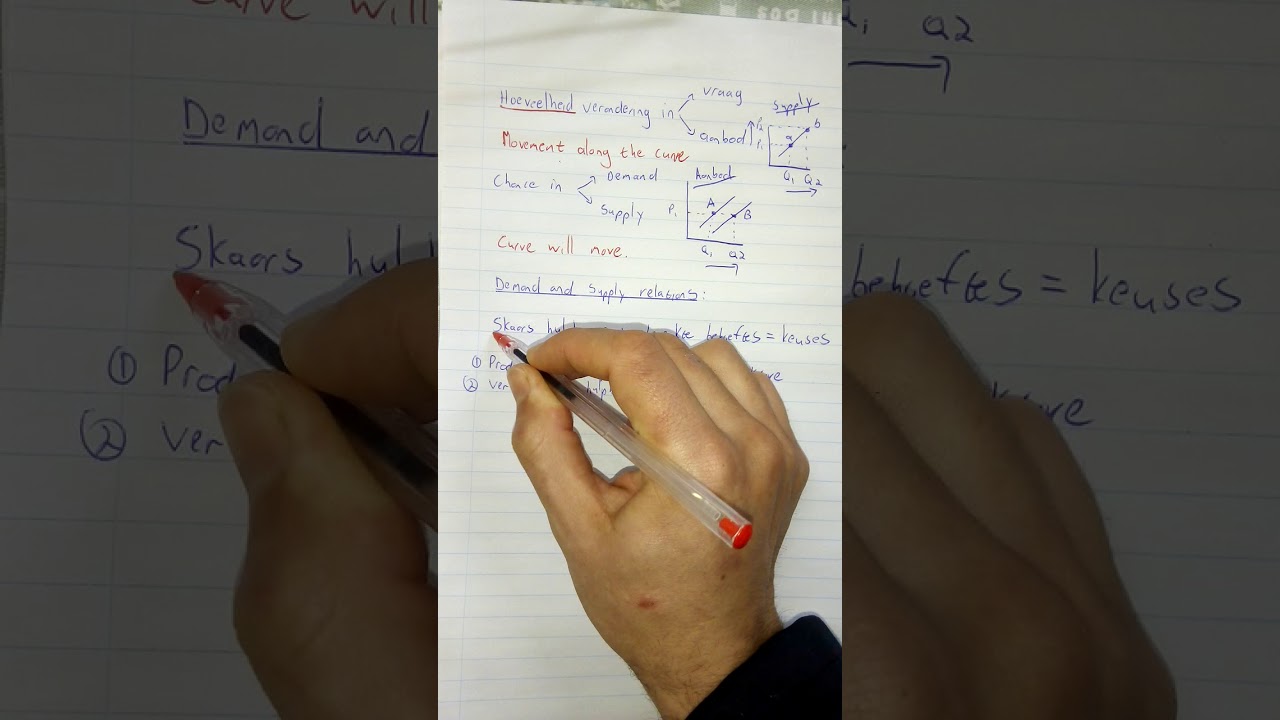 Hoeveelheid verandering in vraag
aanbod
Supply
P2
P1
a
b
Q1 Q2
Movement along the curve
Chace in Demand
Supply
Aanbod
P1
A
B
Q1 Q2
Curve will move.
Demand and Supply relations:
Skaars behoeftes = keuses
① Prod
② Ver